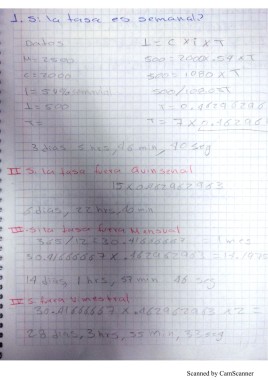 I. Si la tasa es semanal?
Datos I = C x i x T
M = 2500 500 = 2000x.54 x T
C = 2000 500 = 1080 x T
I = 54% semanal 500/1080=T
I = 500 T = 0.46296296
T = T = 7 x 0.46296
3 dias, 5 hrs, 46 min, 40 seg
II Si la tasa fuera Quinsenal
15 x 0.462962963
6 dias, 22 hrs, 40 min
III si la tasa fuera Mensual
365/12=30.41666667 1 mes
30.41666667 x .462962963 =
14 dias, 1 hrs, 57 min 46 seg
IV Si fuera bimestral
30.41666667 x .462962963 x 2 =
28 dias, 3 hrs, 55 min, 33 seg
Scanned by CamScanner